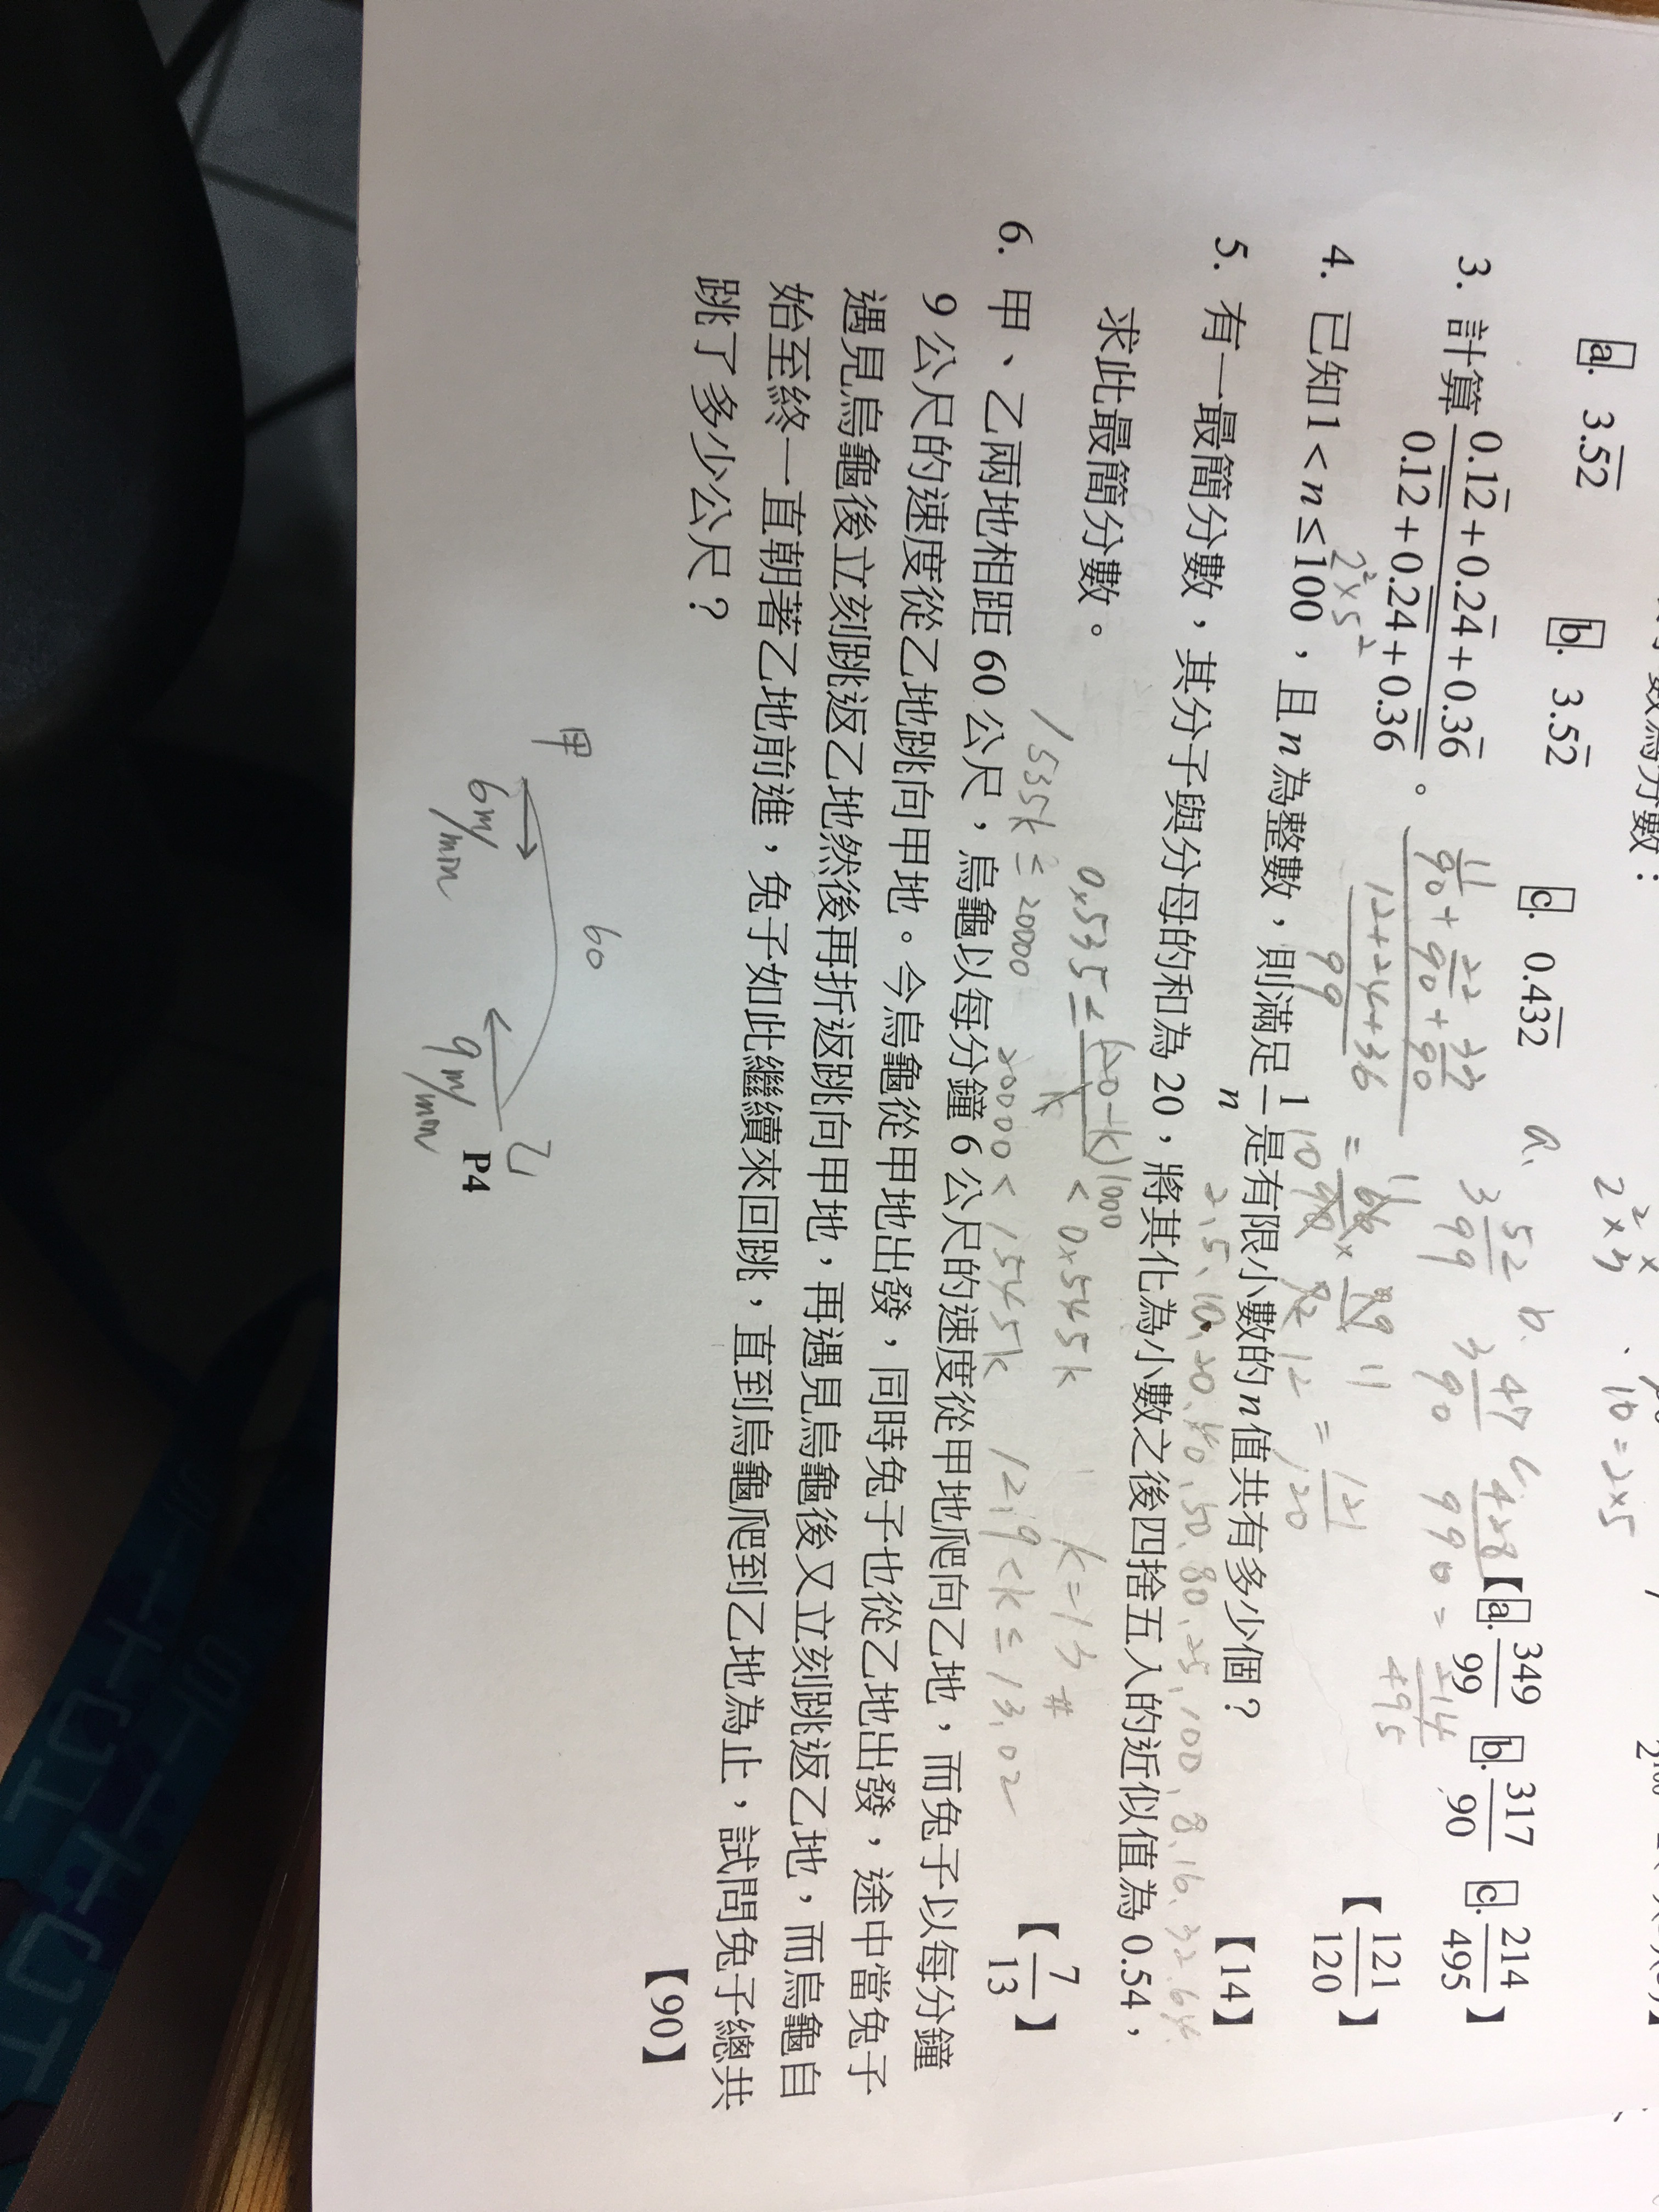 a. 3.5̅2̅ b. 3.52̅ c. 0.43̅2̅
【a. 349/99 b. 317/90 c. 214/495】
a、3 52/99 b、3 47/90 c 428/990 = 214/495
3. 計算 (0.12̅+0.24̅+0.36̅)/(0.1̅2̅+0.2̅4̅+0.3̅6̅)。
【121/120】
(11/90 + 22/90 + 33/90)/((12+24+36)/99) = 66/90 × 99/72 = 121/120
4. 已知1<n≤100,且n為整數,則滿足1/n是有限小數的n值共有多少個?
【14】
2²×5²
2、5、10、20、40、50、80、25、100、8、16、32、64
5. 有一最簡分數,其分子與分母的和為20,將其化為小數之後四捨五入的近似值為0.54,
求此最簡分數。
【7/13】
k=13 #
1535k ≤ 20000
20000 < 1545k
12.9 < k ≤ 13.02
6. 甲、乙兩地相距60公尺,烏龜以每分鐘6公尺的速度從甲地爬向乙地,而兔子以每分鐘
9公尺的速度從乙地跳向甲地。今烏龜從甲地出發,同時兔子也從乙地出發,途中當兔子
遇見烏龜後立刻跳返乙地然後再折返跳向甲地,再遇見烏龜後又立刻跳返乙地,而烏龜自
始至終一直朝著乙地前進,兔子如此繼續來回跳,直到烏龜爬到乙地為止,試問兔子總共
跳了多少公尺?
【90】
60
甲
乙
6m/min
9m/min
P4